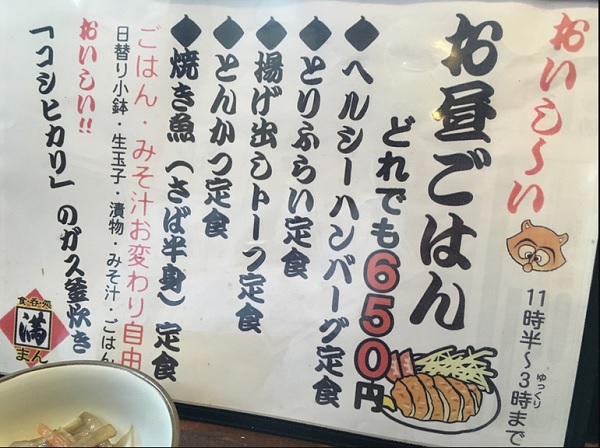 おいし～い
11時半～3時まで
ゆっくり
お昼ごはん
どれでも650円
◆ヘルシーハンバーグ定食
◆とりふらい定食
◆揚げ出しトーフ定食
◆とんかつ定食
◆焼き魚(さば半身)定食
ごはん・みそ汁お変わり自由
日替り小鉢・生玉子・漬物・みそ汁・ごはん
おいしい!!
「コシヒカリ」のガス釜炊き
食・呑・処
満
まん